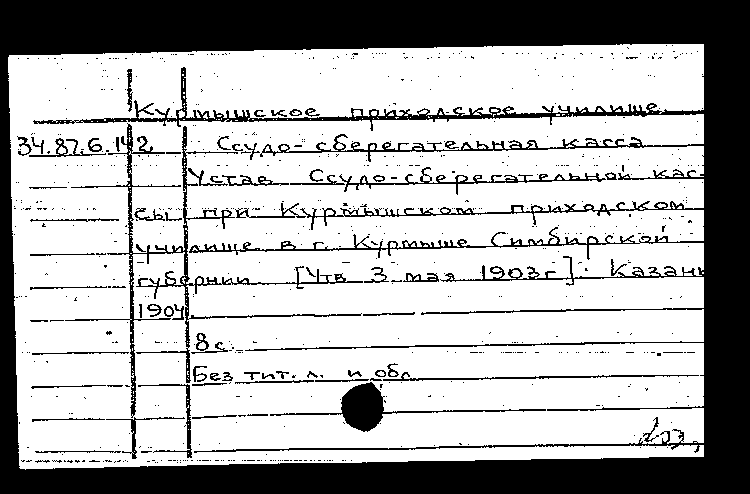 Курмышское приходское училище.
34.87.6.142 Ссудо-сберегательная касса
Устав Ссудо-сберегательной кас-
сы при Курмышском приходском
училище в г. Курмыше Симбирской
губернии [Утв 3 мая 1903г]. Казань
1904.
8 с.
Без тит. л. и обл